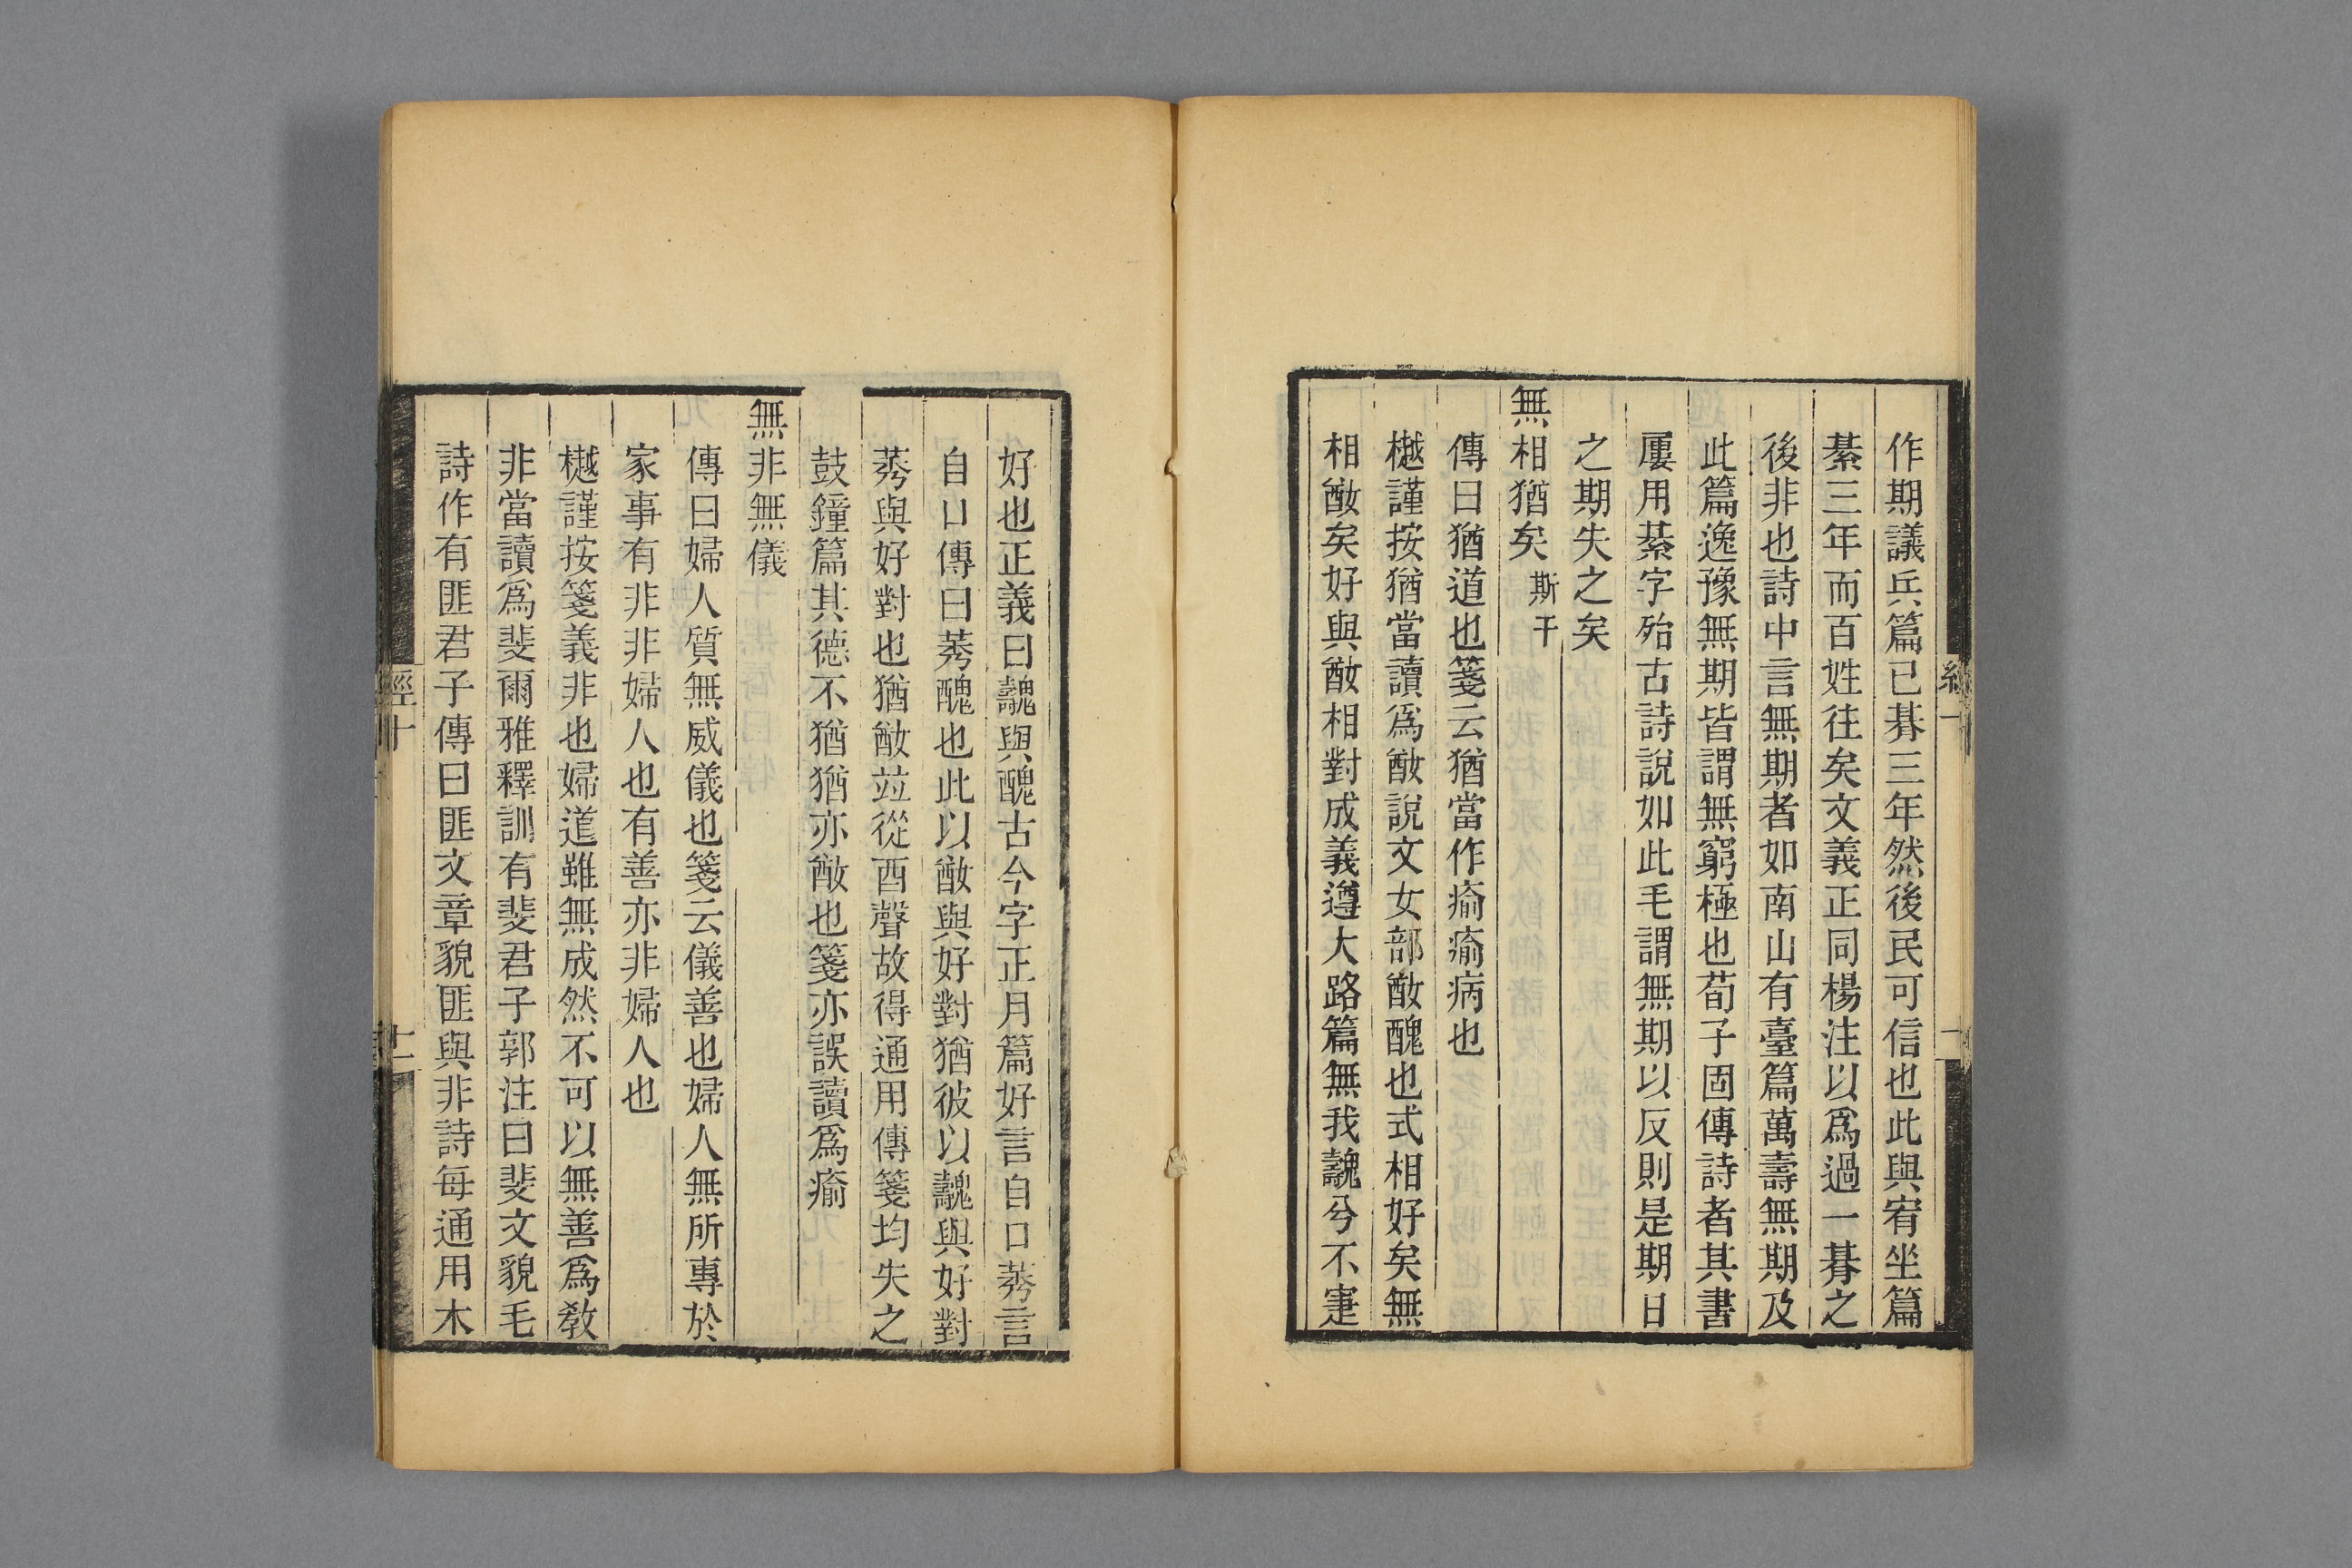 作期議兵篇已朞三年然後民可信也此與宥坐篇
綦三年而百姓往矣文義正同楊注以爲過一朞之
後非也詩中言無期者如南山有臺篇萬壽無期及
此篇逸豫無期皆謂無窮極也荀子固傳詩者其書
屢用綦字殆古詩說如此毛謂無期以反則是期日
之期失之矣
無相猶矣 斯干
傳曰猶道也箋云猶當作瘉瘉病也
樾謹按猶當讀爲㛗說文女部㛗醜也式相好矣無
相㛗矣好與㛗相對成義遵大路篇無我魗兮不寁
好也正義曰魗與醜古今字正月篇好言自口莠言
自口傳曰莠醜也此以㛗與好對猶彼以魗與好對
莠與好對也猶㛗竝從酉聲故得通用傳箋均失之
鼓鐘篇其德不猶猶亦㛗也箋亦誤讀爲瘉
無非無儀
傳曰婦人質無威儀也箋云儀善也婦人無所專於
家事有非非婦人也有善亦非婦人也
樾謹按箋義非也婦道雖無成然不可以無善爲敎
非當讀爲斐爾雅釋訓有斐君子郭注曰斐文貌毛
詩作有匪君子傳曰匪文章貌匪與非詩每通用木
經十